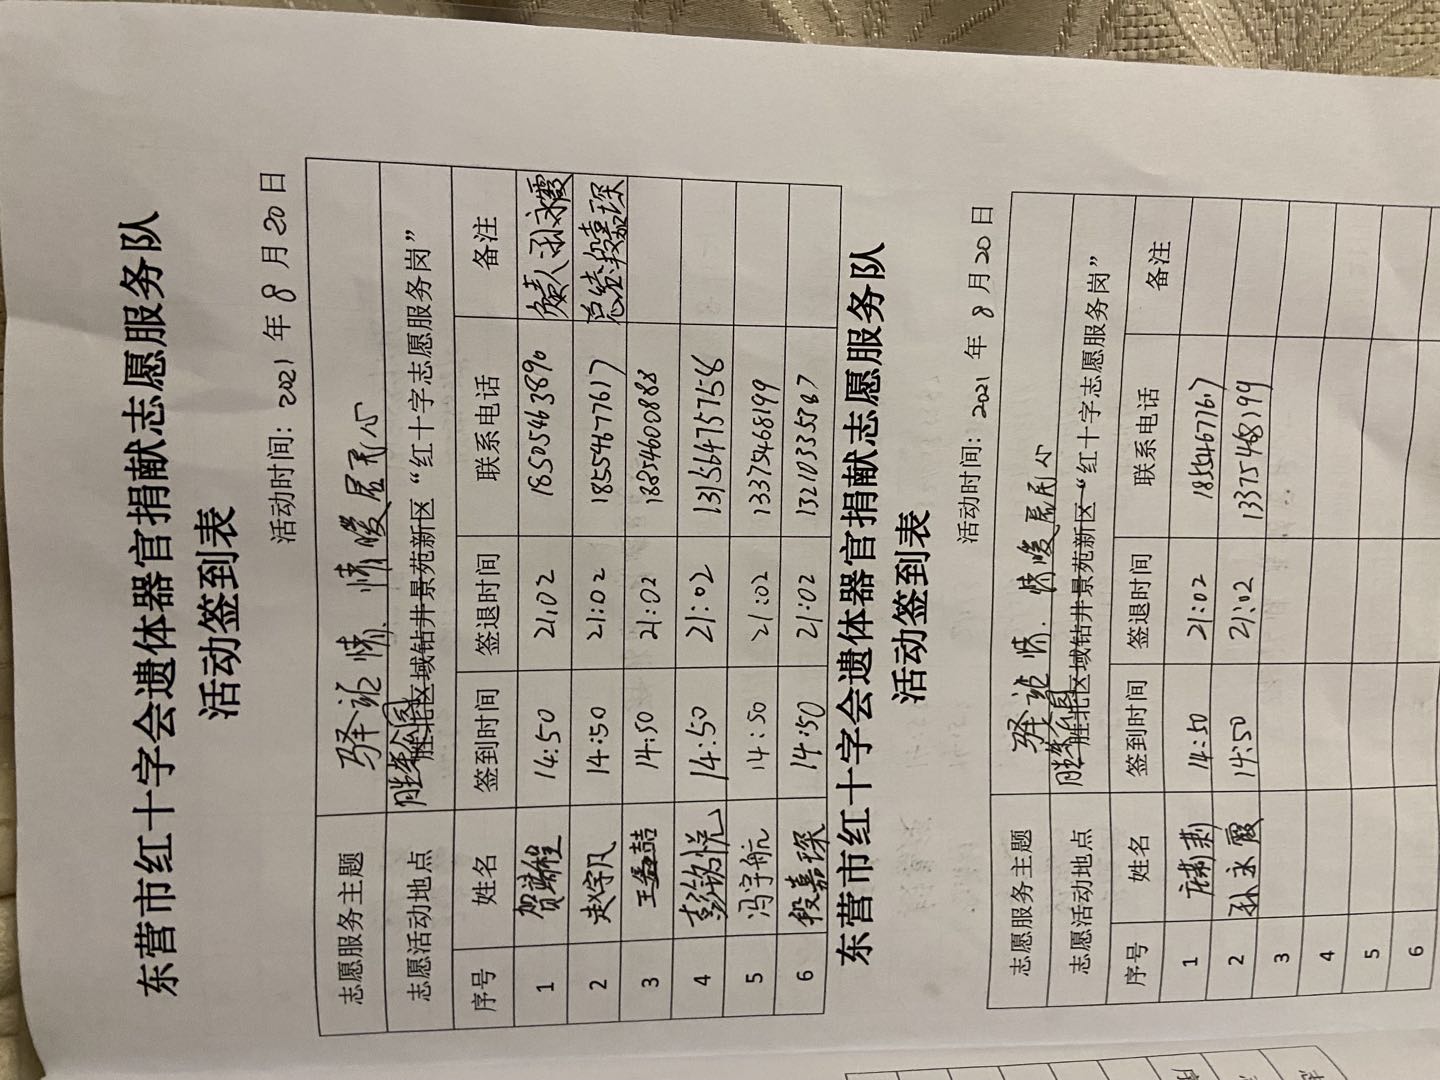 东营市红十字会遗体器官捐献志愿服务队
活动签到表
活动时间: 2021 年 8 月 20 日
志愿服务主题 驿站情、情暖居民心
志愿活动地点 胜北区域钻井景苑新区“红十字志愿服务岗”
序号 姓名 签到时间 签退时间 联系电话 备注
1 贺瑞程 14:50 21:02 18505463890 负责人孙永霞
2 赵守凡 14:50 21:02 18554677617 总签段嘉琛
3 王 喆 14:50 21:02 18854600888
4 彭铭悦 14:50 21:02 13156475758
5 冯宇航 14:50 21:02 13375468199
6 段嘉琛 14:50 21:02 13210335567
东营市红十字会遗体器官捐献志愿服务队
活动签到表
活动时间: 2021 年 8 月 20 日
志愿服务主题 驿站情、情暖居民心
志愿活动地点 胜北区域钻井景苑新区“红十字志愿服务岗”
序号 姓名 签到时间 签退时间 联系电话 备注
1 14:50 21:02 18554677617
2 孙永霞 14:50 21:02 13375468199
3
4
5
6